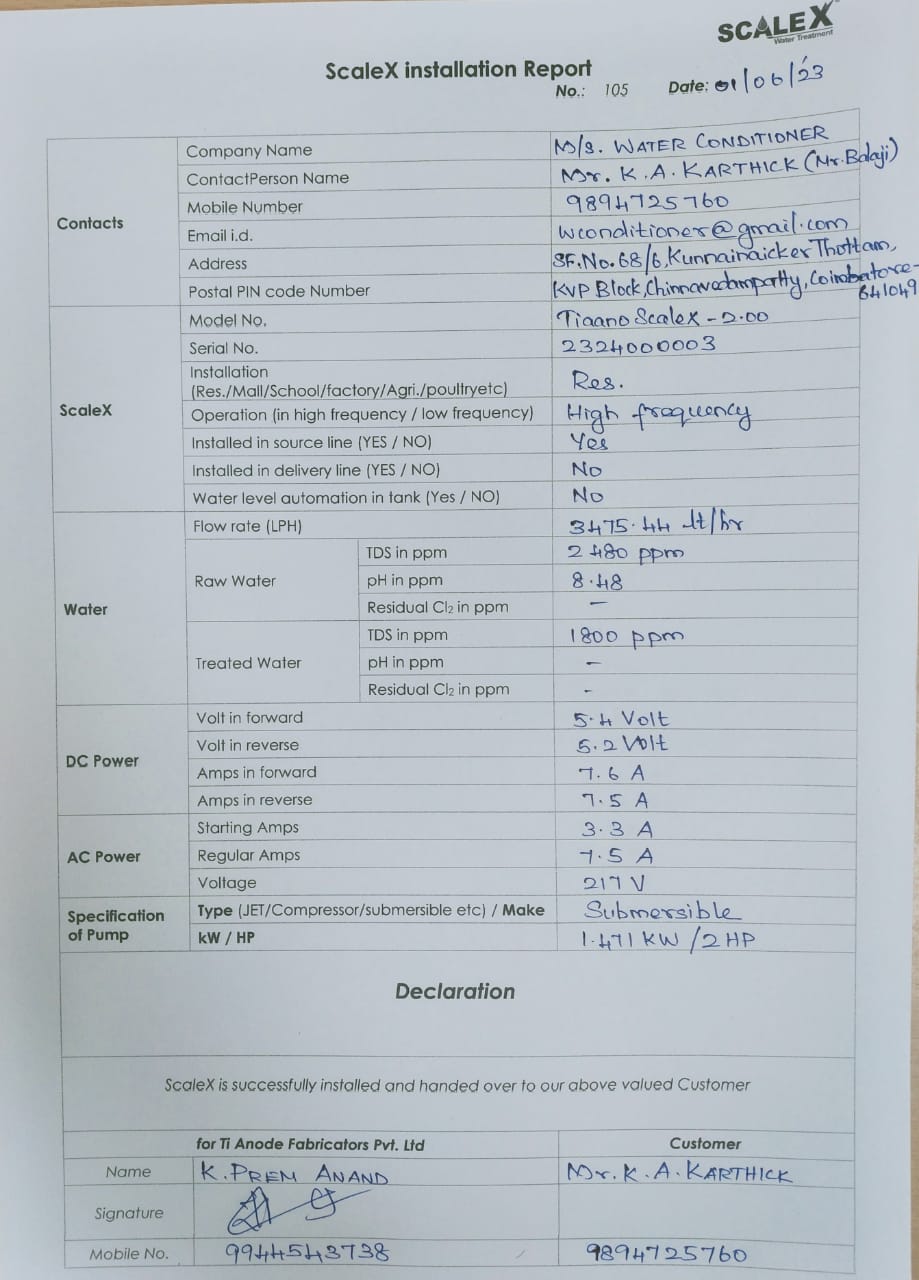 SCALEX
Water Treatment
ScaleX installation Report
No.: 105 Date: 01/06/23
Contacts
Company Name M/s. WATER CONDITIONER
ContactPerson Name Mr. K.A. KARTHICK (Mr. Balaji)
Mobile Number 9894725760
Email i.d. wconditioner@gmail.com
Address SF.No.68/6, Kunnainaicker Thottam,
Postal PIN code Number KVP Block, Chinnavedampatty, Coimbatore-
641049
ScaleX
Model No. Tiaano ScaleX - 2.00
Serial No. 2324000003
Installation
(Res./Mall/School/factory/Agri./poultryetc) Res.
Operation (in high frequency / low frequency) High frequency
Installed in source line (YES / NO) Yes
Installed in delivery line (YES / NO) No
Water level automation in tank (Yes / NO) No
Water
Flow rate (LPH) 3475.44 lt/hr
Raw Water
TDS in ppm 2480 ppm
pH in ppm 8.48
Residual Cl2 in ppm -
Treated Water
TDS in ppm 1800 ppm
pH in ppm -
Residual Cl2 in ppm -
DC Power
Volt in forward 5.4 Volt
Volt in reverse 5.2 Volt
Amps in forward 7.6 A
Amps in reverse 7.5 A
AC Power
Starting Amps 3.3 A
Regular Amps 7.5 A
Voltage 217 V
Specification
of Pump
Type (JET/Compressor/submersible etc) / Make Submersible
kW / HP 1.471 KW / 2 HP
Declaration
ScaleX is successfully installed and handed over to our above valued Customer
for Ti Anode Fabricators Pvt. Ltd Customer
Name K. PREM ANAND Mr. K.A. KARTHICK
Signature
Mobile No. 9944543738 9894725760